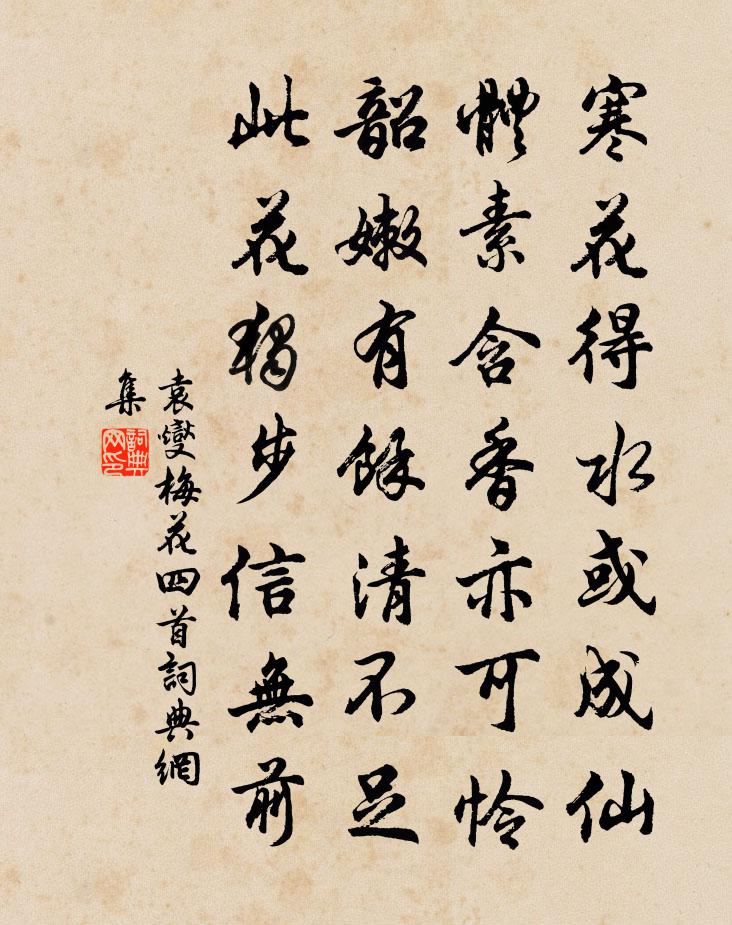 寒花得水或成仙
體素含香亦可憐
韶嫩有餘清不足
此花獨步信無前
袁燮梅花四首詞典網
集
詞典
网印